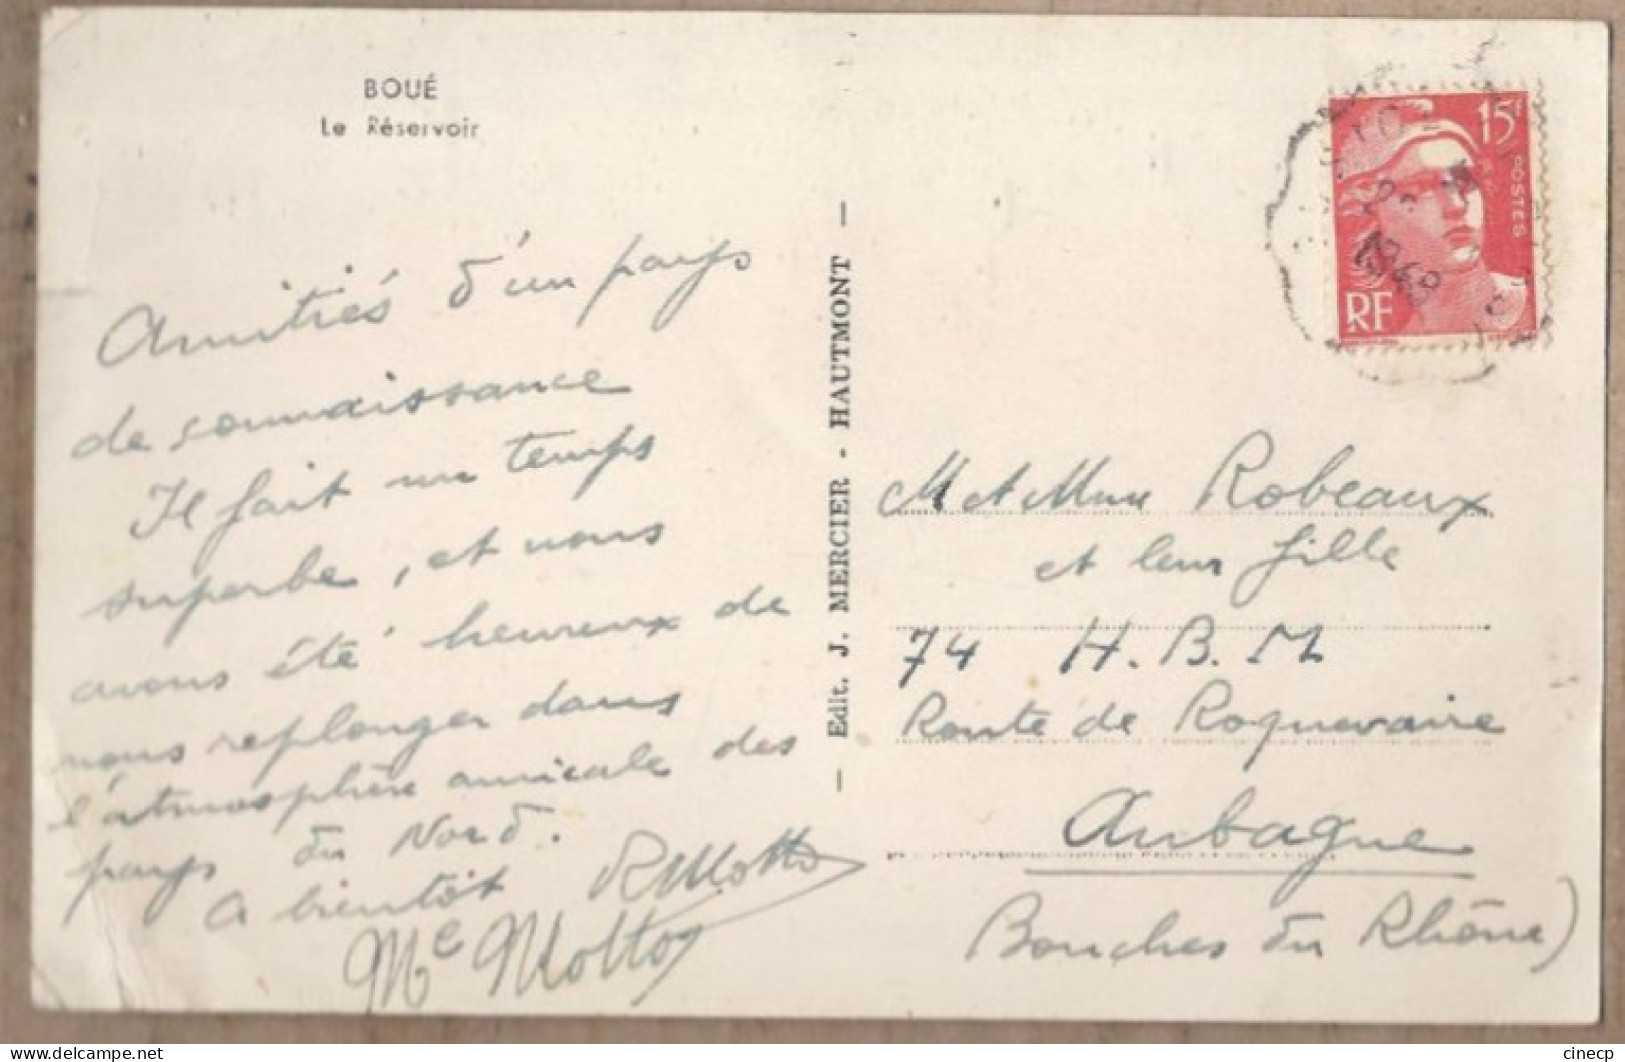 BOUÉ
Le Réservoir
Amitiés d'un pays
de connaissance
Il fait un temps
superbe, et nous
avons été heureux de
nous replonger dans
l'atmosphère amicale des
pays du Nord.
A bientôt RMotto
Me Motto
— Edit. J. MERCIER - HAUTMONT —
15F
POSTES
RF
M et Mme Robeaux
et leur fille
74 H.B.M
Route de Roquevaire
Aubagne
Bouches du Rhône)
delcampe.net
cinecp